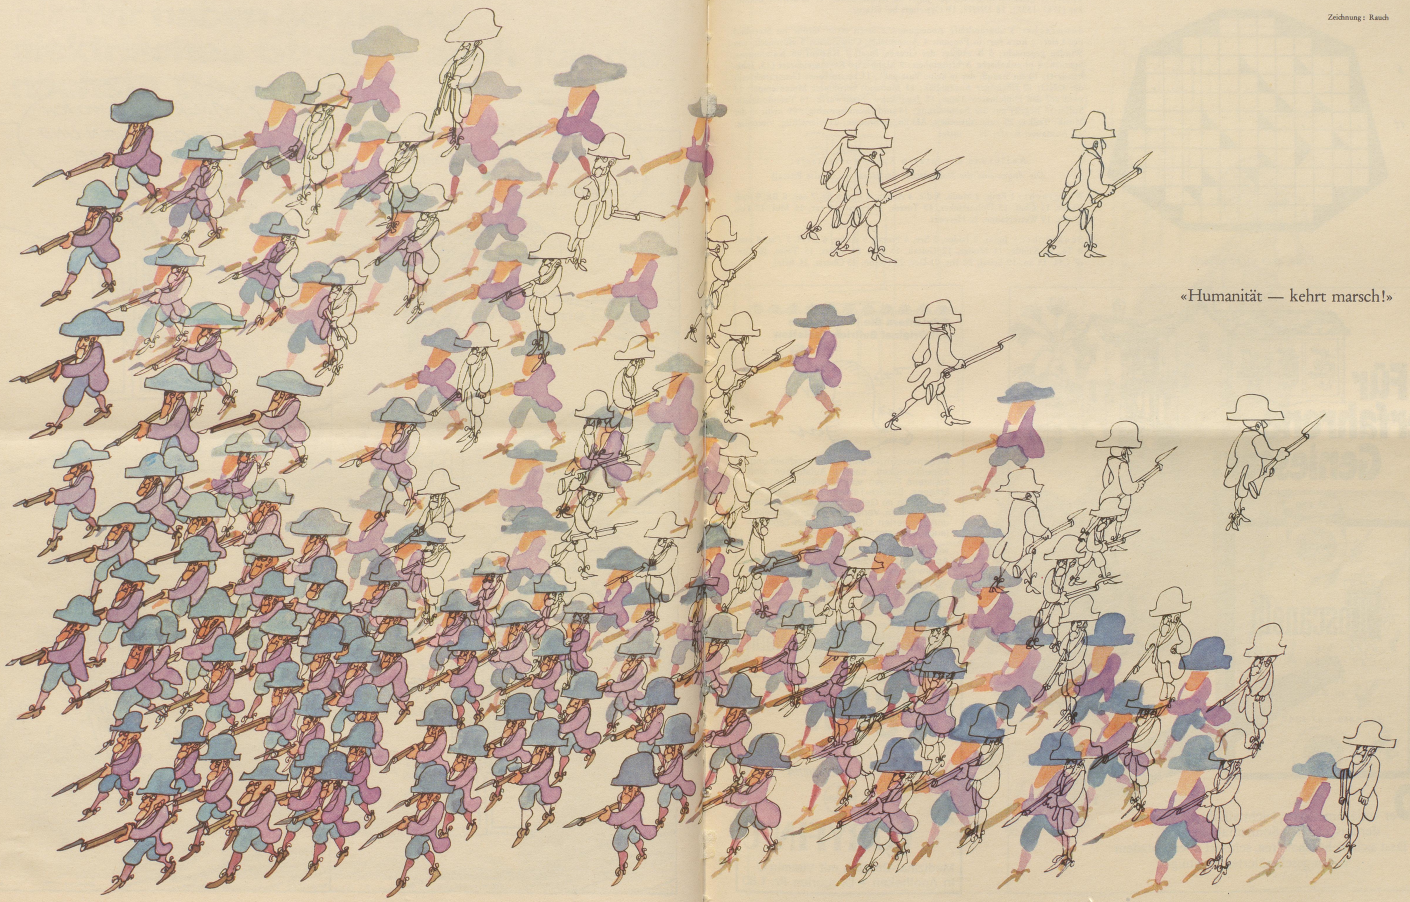 Zeichnung: Rauch
«Humanität — kehrt marsch!»